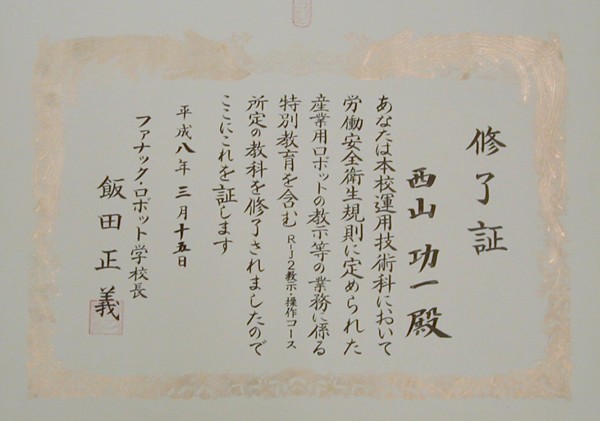 修了証
西山功一殿
あなたは本校運用技術科において
労働安全衛生規則に定められた
産業用ロボットの教示等の業務に係る
特別教育を含む R-J2教示・操作コース
所定の教科を修了されましたので
ここにこれを証します
平成八年三月十五日
ファナック・ロボット学校長
飯田正義